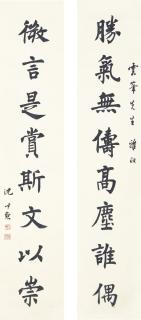 勝氣無儔高塵誰偶
雲峯先生雅政
微言是賞斯文以崇
沈尹默